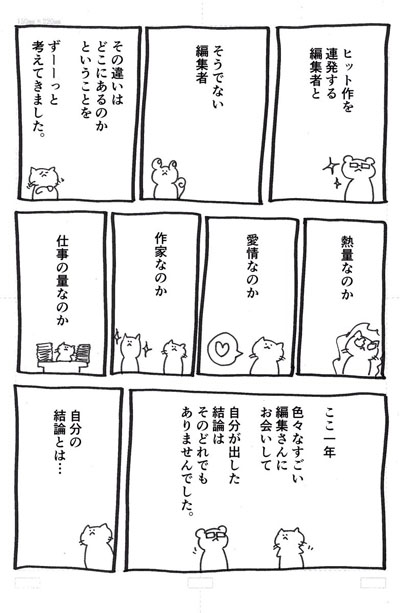 ヒット作を
連発する
編集者と
そうでない
編集者
その違いは
どこにあるのか
ということを
ずーーっと
考えてきました。
熱量なのか
愛情なのか
作家なのか
仕事の量なのか
ここ一年
色々なすごい
編集さんに
お会いして
自分が出した
結論は
そのどれでも
ありませんでした。
自分の
結論とは…